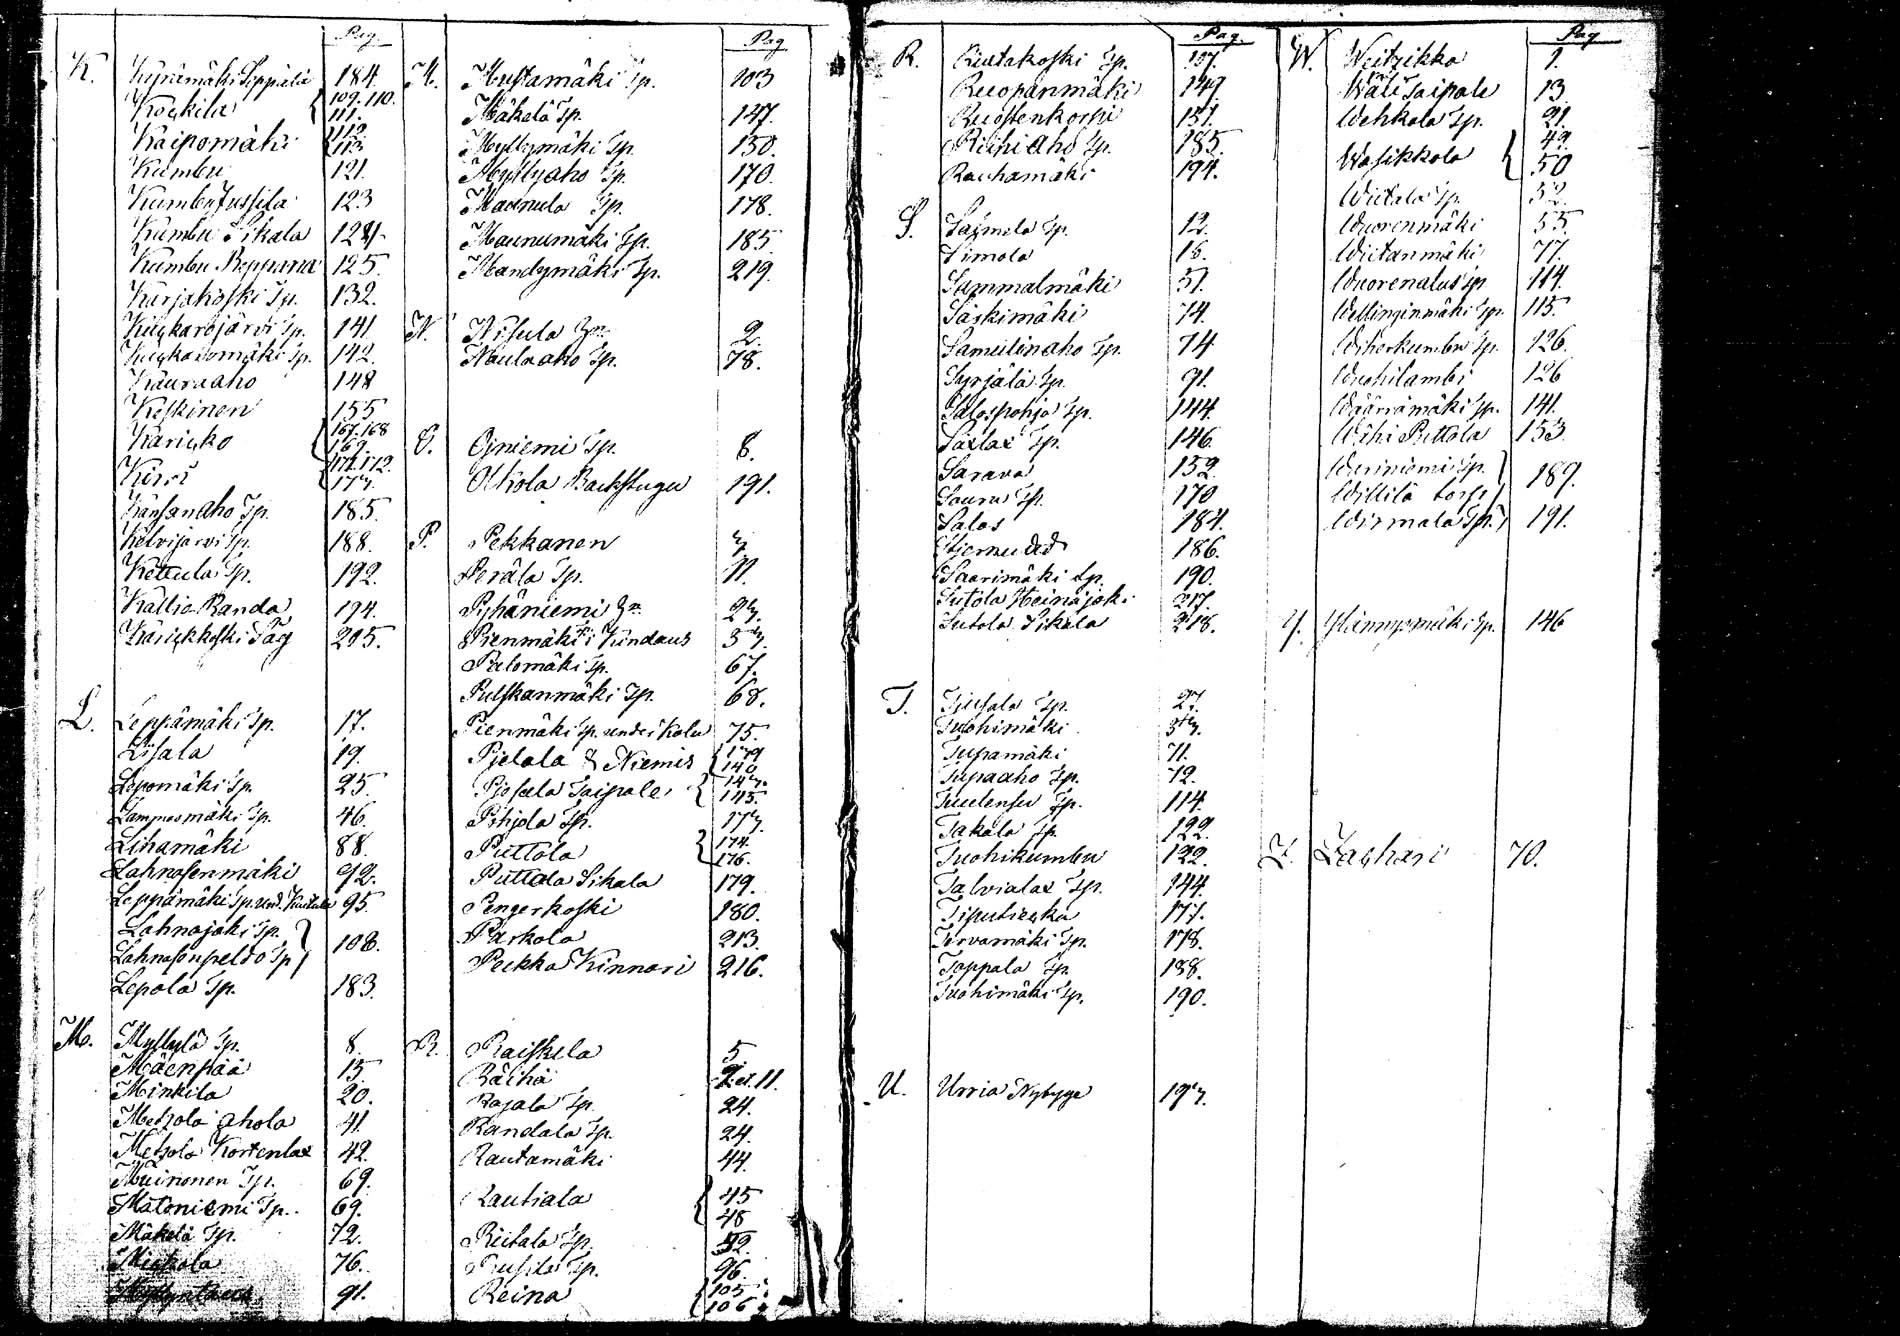 Pag.
K. Kypärämäki Seppälä 184
Kockila 109. 110. 111.
Kaipomäki 112. 113
Kumbu 121.
Kumbu Jussila 123
Kumbu Sikala 124
Kumbu Reppana 125.
Karjakoski Tp. 132.
Kuckarojärvi Tp. 141
Kuckaromäki Tp. 142.
Kauraaho 148
Keskinen 155
Karicko 167. 168 169.
Kirri 171. 172. 173.
Kansanaho Tp. 185.
Kelvijärvi Tp. 188.
Kettula Tp. 192.
Kallio Randa 194.
Kärickkoski Såg 205.
L. Leppämäki Tp. 17.
Lijsala 19.
Lepomäki Tp. 25.
Lamposmäki Tp. 46.
Lihamäki 88.
Lahnasenmäki 92.
Leppämäki Tp. und. 95.
Lahnajoki Tp.
Lahnasenpeldo Tp 108.
Lepola Tp. 183.
M. Myllylä Tp. 8.
Mäenpää 15
Minkila 20.
Metzola Ahola 41
Metzola Kortenlax 42.
Muinonen Tp. 69.
Matoniemi Tp. 69.
Mäkelä Tp. 72.
Mickola 76.
91.
Pag
M. Mustamäki Tp. 103
Mäkelä Tp. 147.
Myllymäki Tp. 150.
Myllyaho Tp. 170.
Maunula Tp. 178.
Maunumäki Tp. 185.
Mandymäki Tp. 219.
N. Nisula 2.
Naulaaho Tp. 78.
O. Ojniemi Tp. 8.
Olkola Backstugu 191.
P. Pekkanen 3
Peräla Tp. 11.
Pyhäniemi 23.
Pienmäki i Kindaus 53.
Palomäki Tp. 67.
Pulskanmäki Tp. 68.
Pienmäki Tp. under Kolu 75.
Pjelala & Niemis 139 140
Pjesala Taipale 143. 145.
Pohjola Tp. 173.
Puttola 174. 176.
Puttola Sikala 179.
Pengerkoski 180.
Parkola 213.
Pukka Kinnari 216.
R. Raiskela 5
Räihä 11.
Rajala Tp. 24.
Randala Tp. 24.
Rautamäki 44.
Rautiala 45 48
Riutala Tp. 52.
Rusila Tp. 96.
Reina 105 106
Pag.
R. Riutakoski Tp. 107.
Ruopanmäki 149
Ruostenkorpi 151.
Riihiaho Tp. 185.
Rauhamäki 194.
S. Salmela Tp. 12.
Simola 16.
Sammalmäki 51.
Säskimäki 74.
Samulinaho Tp. 74
Syrjälä Tp. 91.
Salospohja Tp. 144.
Saxlax Tp. 146.
Sarava 152.
Saura Tp. 170
Salos 184.
Stjernudd 186.
Saarimäki Tp. 190.
Sutola Heinäjoki 217.
Sutola Sikala 218.
T. Tjusala Tp. 27.
Tuohimäki 53.
Tupamäki 71.
Tupaaho Tp. 72.
Tuulensu Tp. 114.
Takala Tp. 122.
Tuohikumbu 122.
Talvialax Tp. 144.
177.
Tervamäki Tp. 178.
Tappala Tp. 188.
Tuohimäki Tp. 190.
U. Urria Nybygge 193.
Pag
W. Weitzikko 1.
Wäli Taipale 13.
Wehkala Tp. 21.
Wasikkola 49. 50
Wiitala Tp. 52.
Wuorenmäki 55.
Wiitanmäki 77.
Wuorenalus Tp. 114.
Wellinginmäki Tp. 115.
Wiherkumbu Tp. 126.
Wuohilambi 126
Wäärrämäki Tp. 141.
Wihi Puttola 153.
Wuriniemi Tp.
Willilä torp 189.
Wirmala Tp. 191.
Y. Ylännysmäki Tp. 146
Z. Zachari 70.